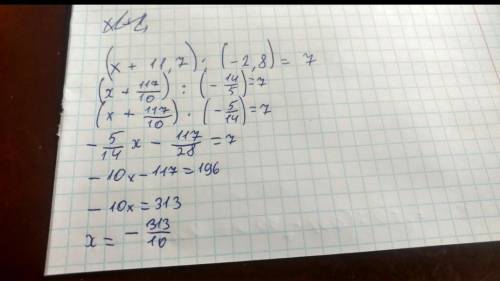 (x + 11,7) : (-2,8) = 7
(x + 117/10) : (- 14/5) = 7
(x + 117/10) · (- 5/14) = 7
- 5/14 x - 117/28 = 7
- 10x - 117 = 196
- 10x = 313
x = - 313/10